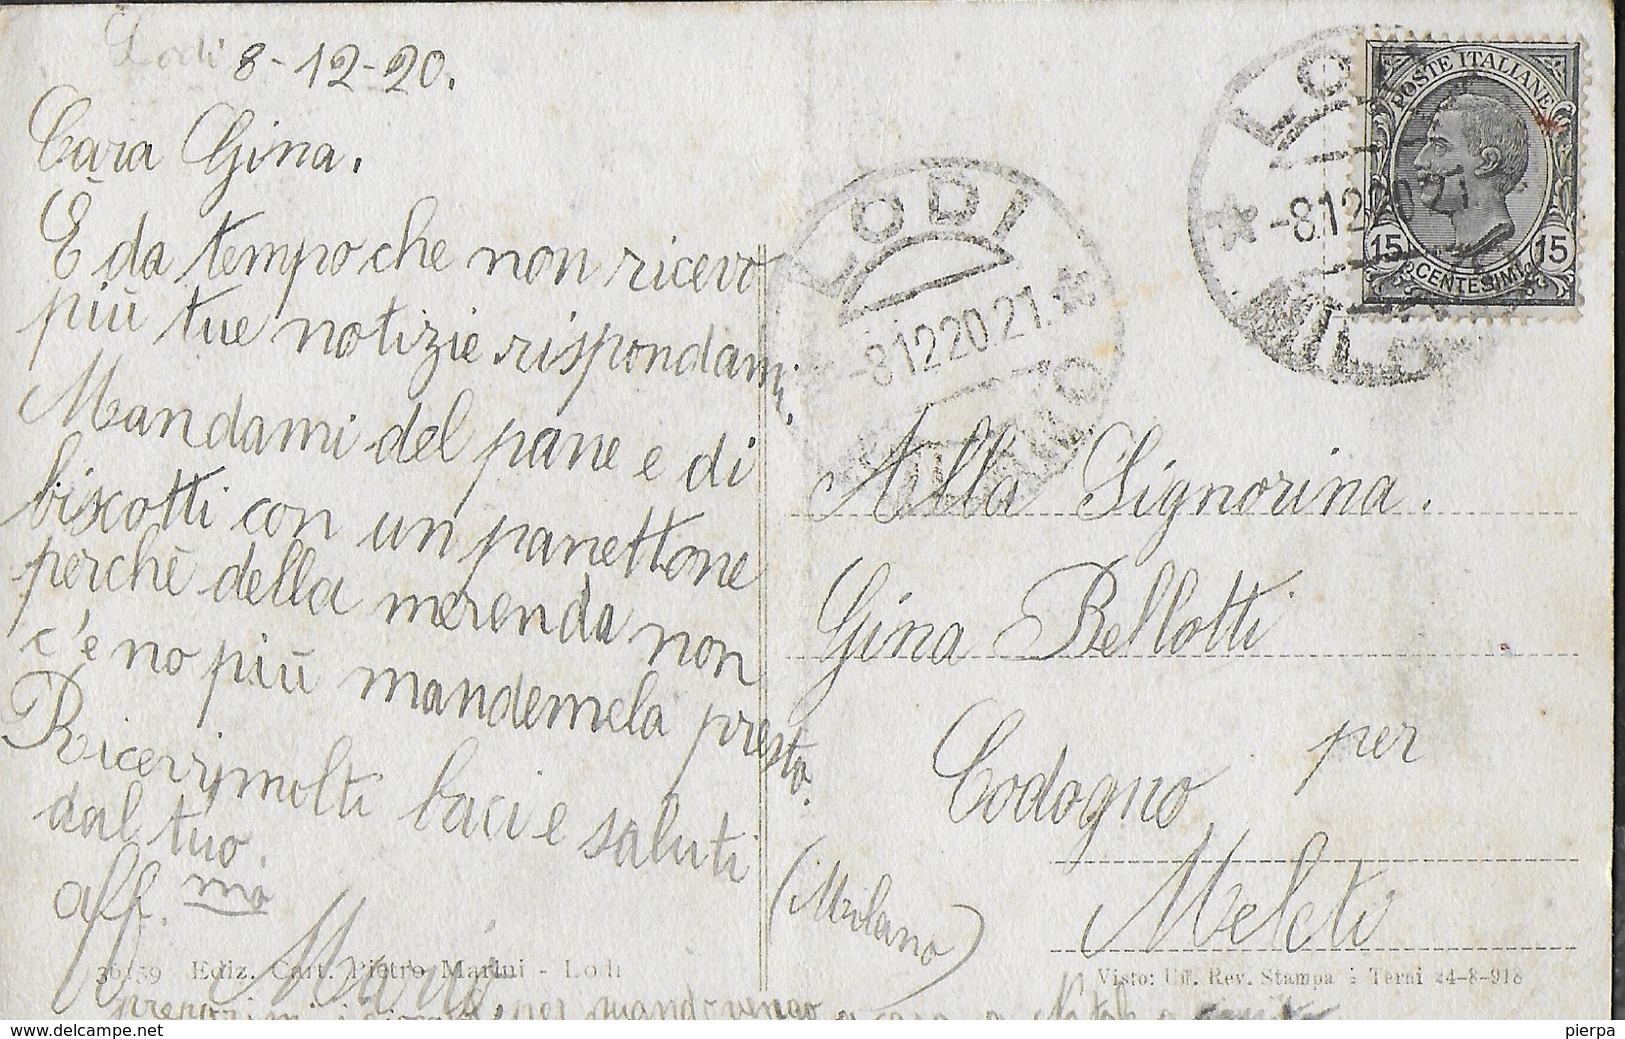 Lodi 8-12-20.
Cara Gina.
È da tempo che non ricevo
più tue notizie rispondami.
Mandami del pane e di
biscotti con un panettone
perchè della merenda non
c'e no più mandemela presto.
Ricevi molti baci e saluti
dal tuo.
aff. mo
Mario
per quando vengo a casa a Natale
36139 Ediz. Cart. Pietro Marini - Lodi
LODI
-8 12 20 21
MILANO
LODI
-8 12 20 21
MILANO
POSTE ITALIANE
15 CENTESIMI 15
Alla Signorina.
Gina Bellotti
per
Codogno
(Milano)
Meleti
Visto: Uff. Rev. Stampa : Terni 24-8-918
delcampe.net
pierpa